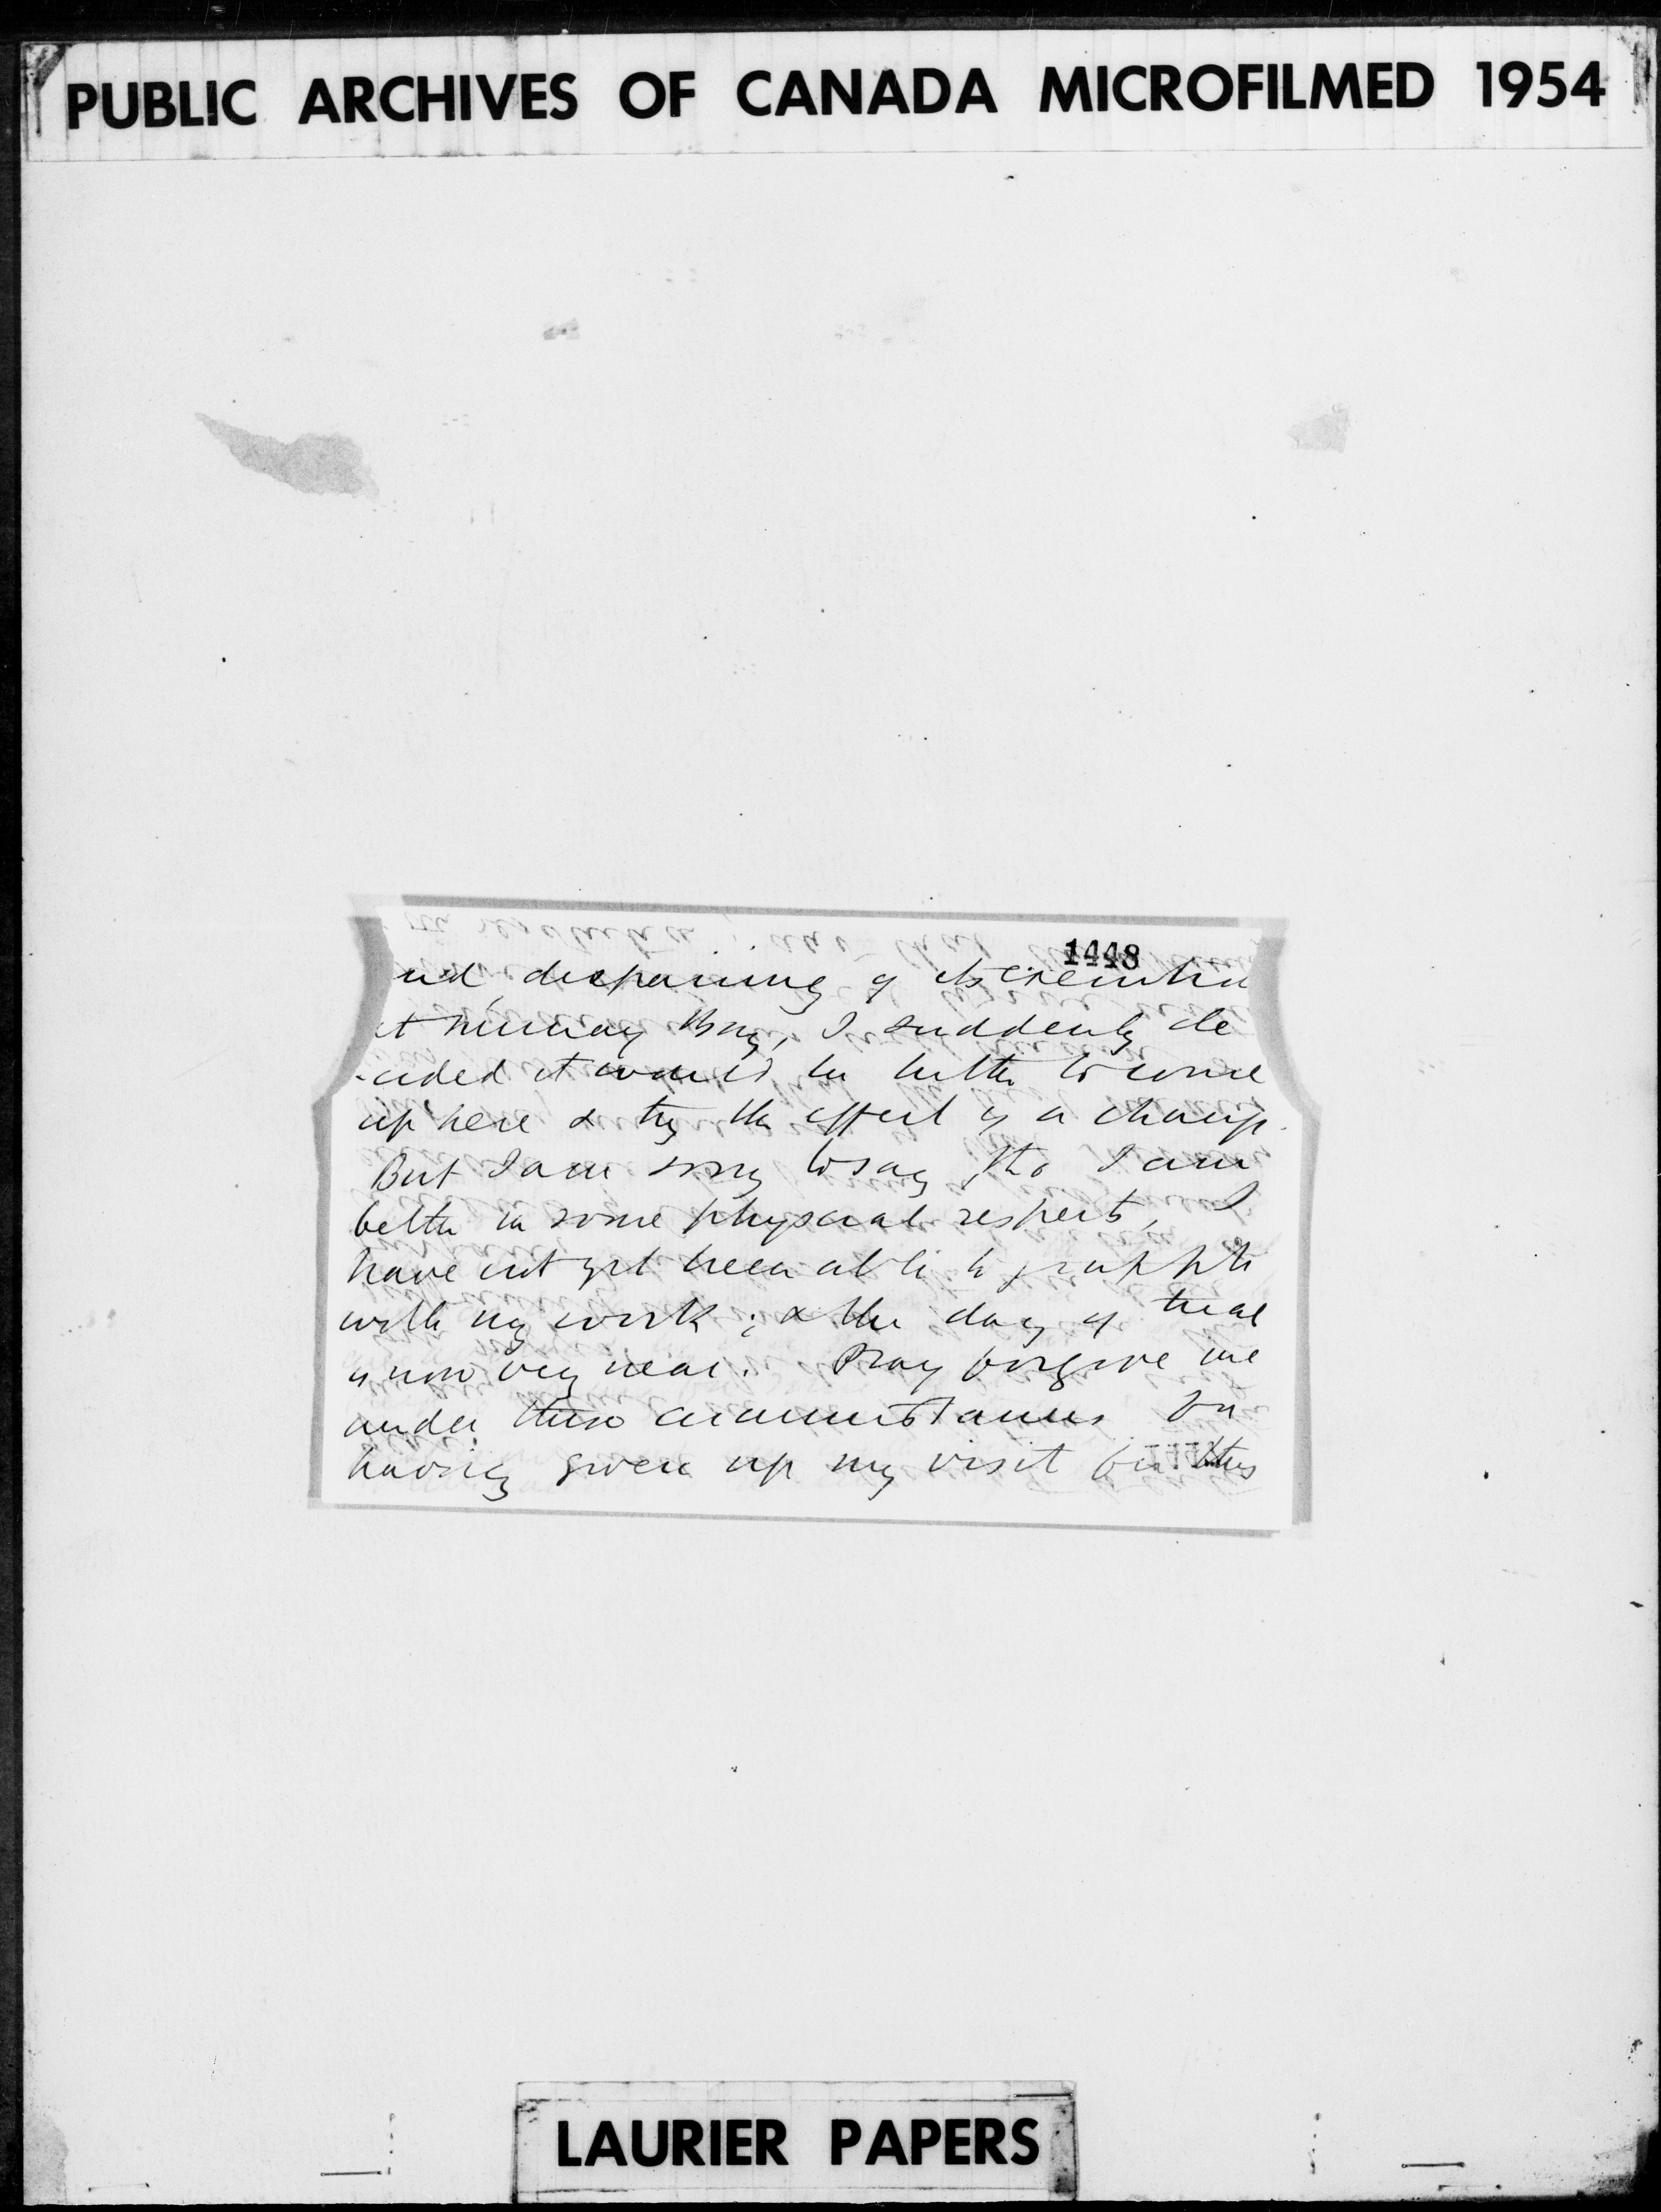 PUBLIC ARCHIVES OF CANADA MICROFILMED 1954
1448
and, despairing of its execution
at Murray Bay, I suddenly de
-cided it would be better to come
up here & try the effect of a change.
But I am sorry to say, tho I am
better in some physical respects, I
have not yet been able to grapple
with my work; & the day of trial
is now very near. Pray forgive me
under these circumstances for
having given up my visit for this
LAURIER PAPERS